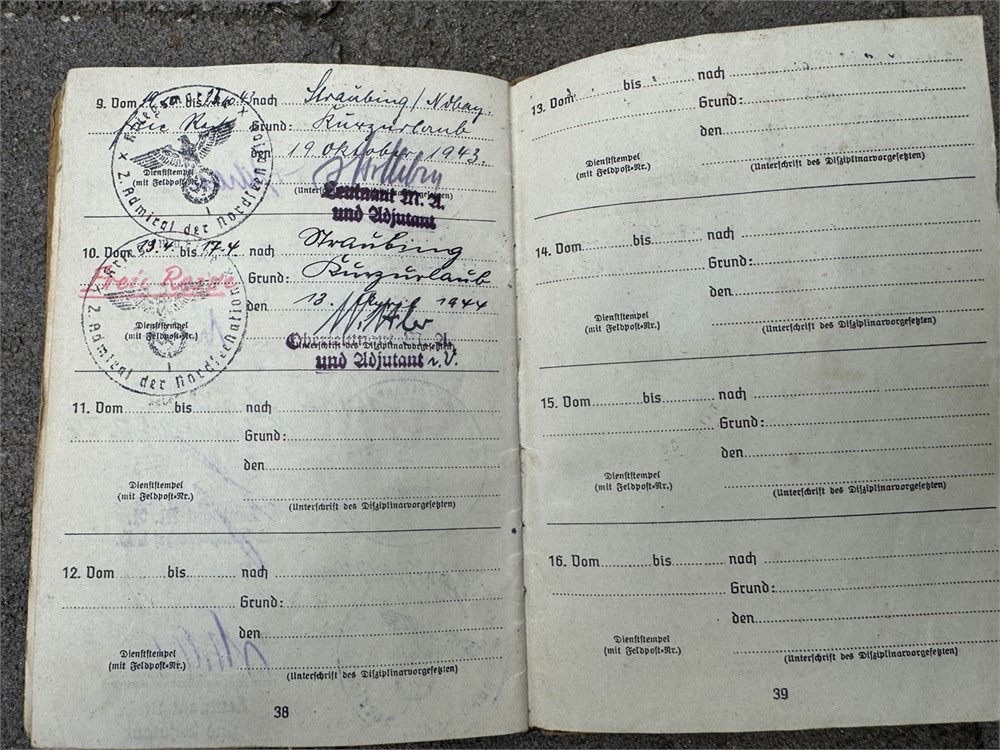 9. Vom 19. bis nach Straubing / Ndbay.
freie Grund: Kurzurlaub
den 19. Oktober 1943.
Dienststempel
(mit Feldpost-Nr.)
Leutnant M. A.
und Adjutant
2. Admiral der Nordseestation
10. Vom 13.4. bis 17.4. nach Straubing
Freie Grund: Kurzurlaub
den 13. April 1944
Dienststempel
(mit Feldpost-Nr.)
(Unterschrift des Disziplinarvorgesetzten)
Oberleutnant M. A.
und Adjutant i. V.
2. Admiral der Nordseestation
11. Vom bis nach
Grund:
den
Dienststempel
(mit Feldpost-Nr.)
(Unterschrift des Disziplinarvorgesetzten)
12. Vom bis nach
Grund:
den
Dienststempel
(mit Feldpost-Nr.)
(Unterschrift des Disziplinarvorgesetzten)
38
13. Vom bis nach
Grund:
den
Dienststempel
(mit Feldpost-Nr.)
(Unterschrift des Disziplinarvorgesetzten)
14. Vom bis nach
Grund:
den
Dienststempel
(mit Feldpost-Nr.)
(Unterschrift des Disziplinarvorgesetzten)
15. Vom bis nach
Grund:
den
Dienststempel
(mit Feldpost-Nr.)
(Unterschrift des Disziplinarvorgesetzten)
16. Vom bis nach
Grund:
den
Dienststempel
(mit Feldpost-Nr.)
(Unterschrift des Disziplinarvorgesetzten)
39